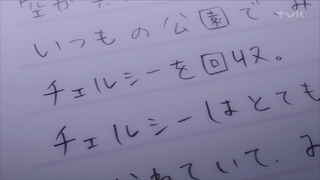 tvk
いつもの公園でみ
チェルシーを回収。
チェルシーはとても